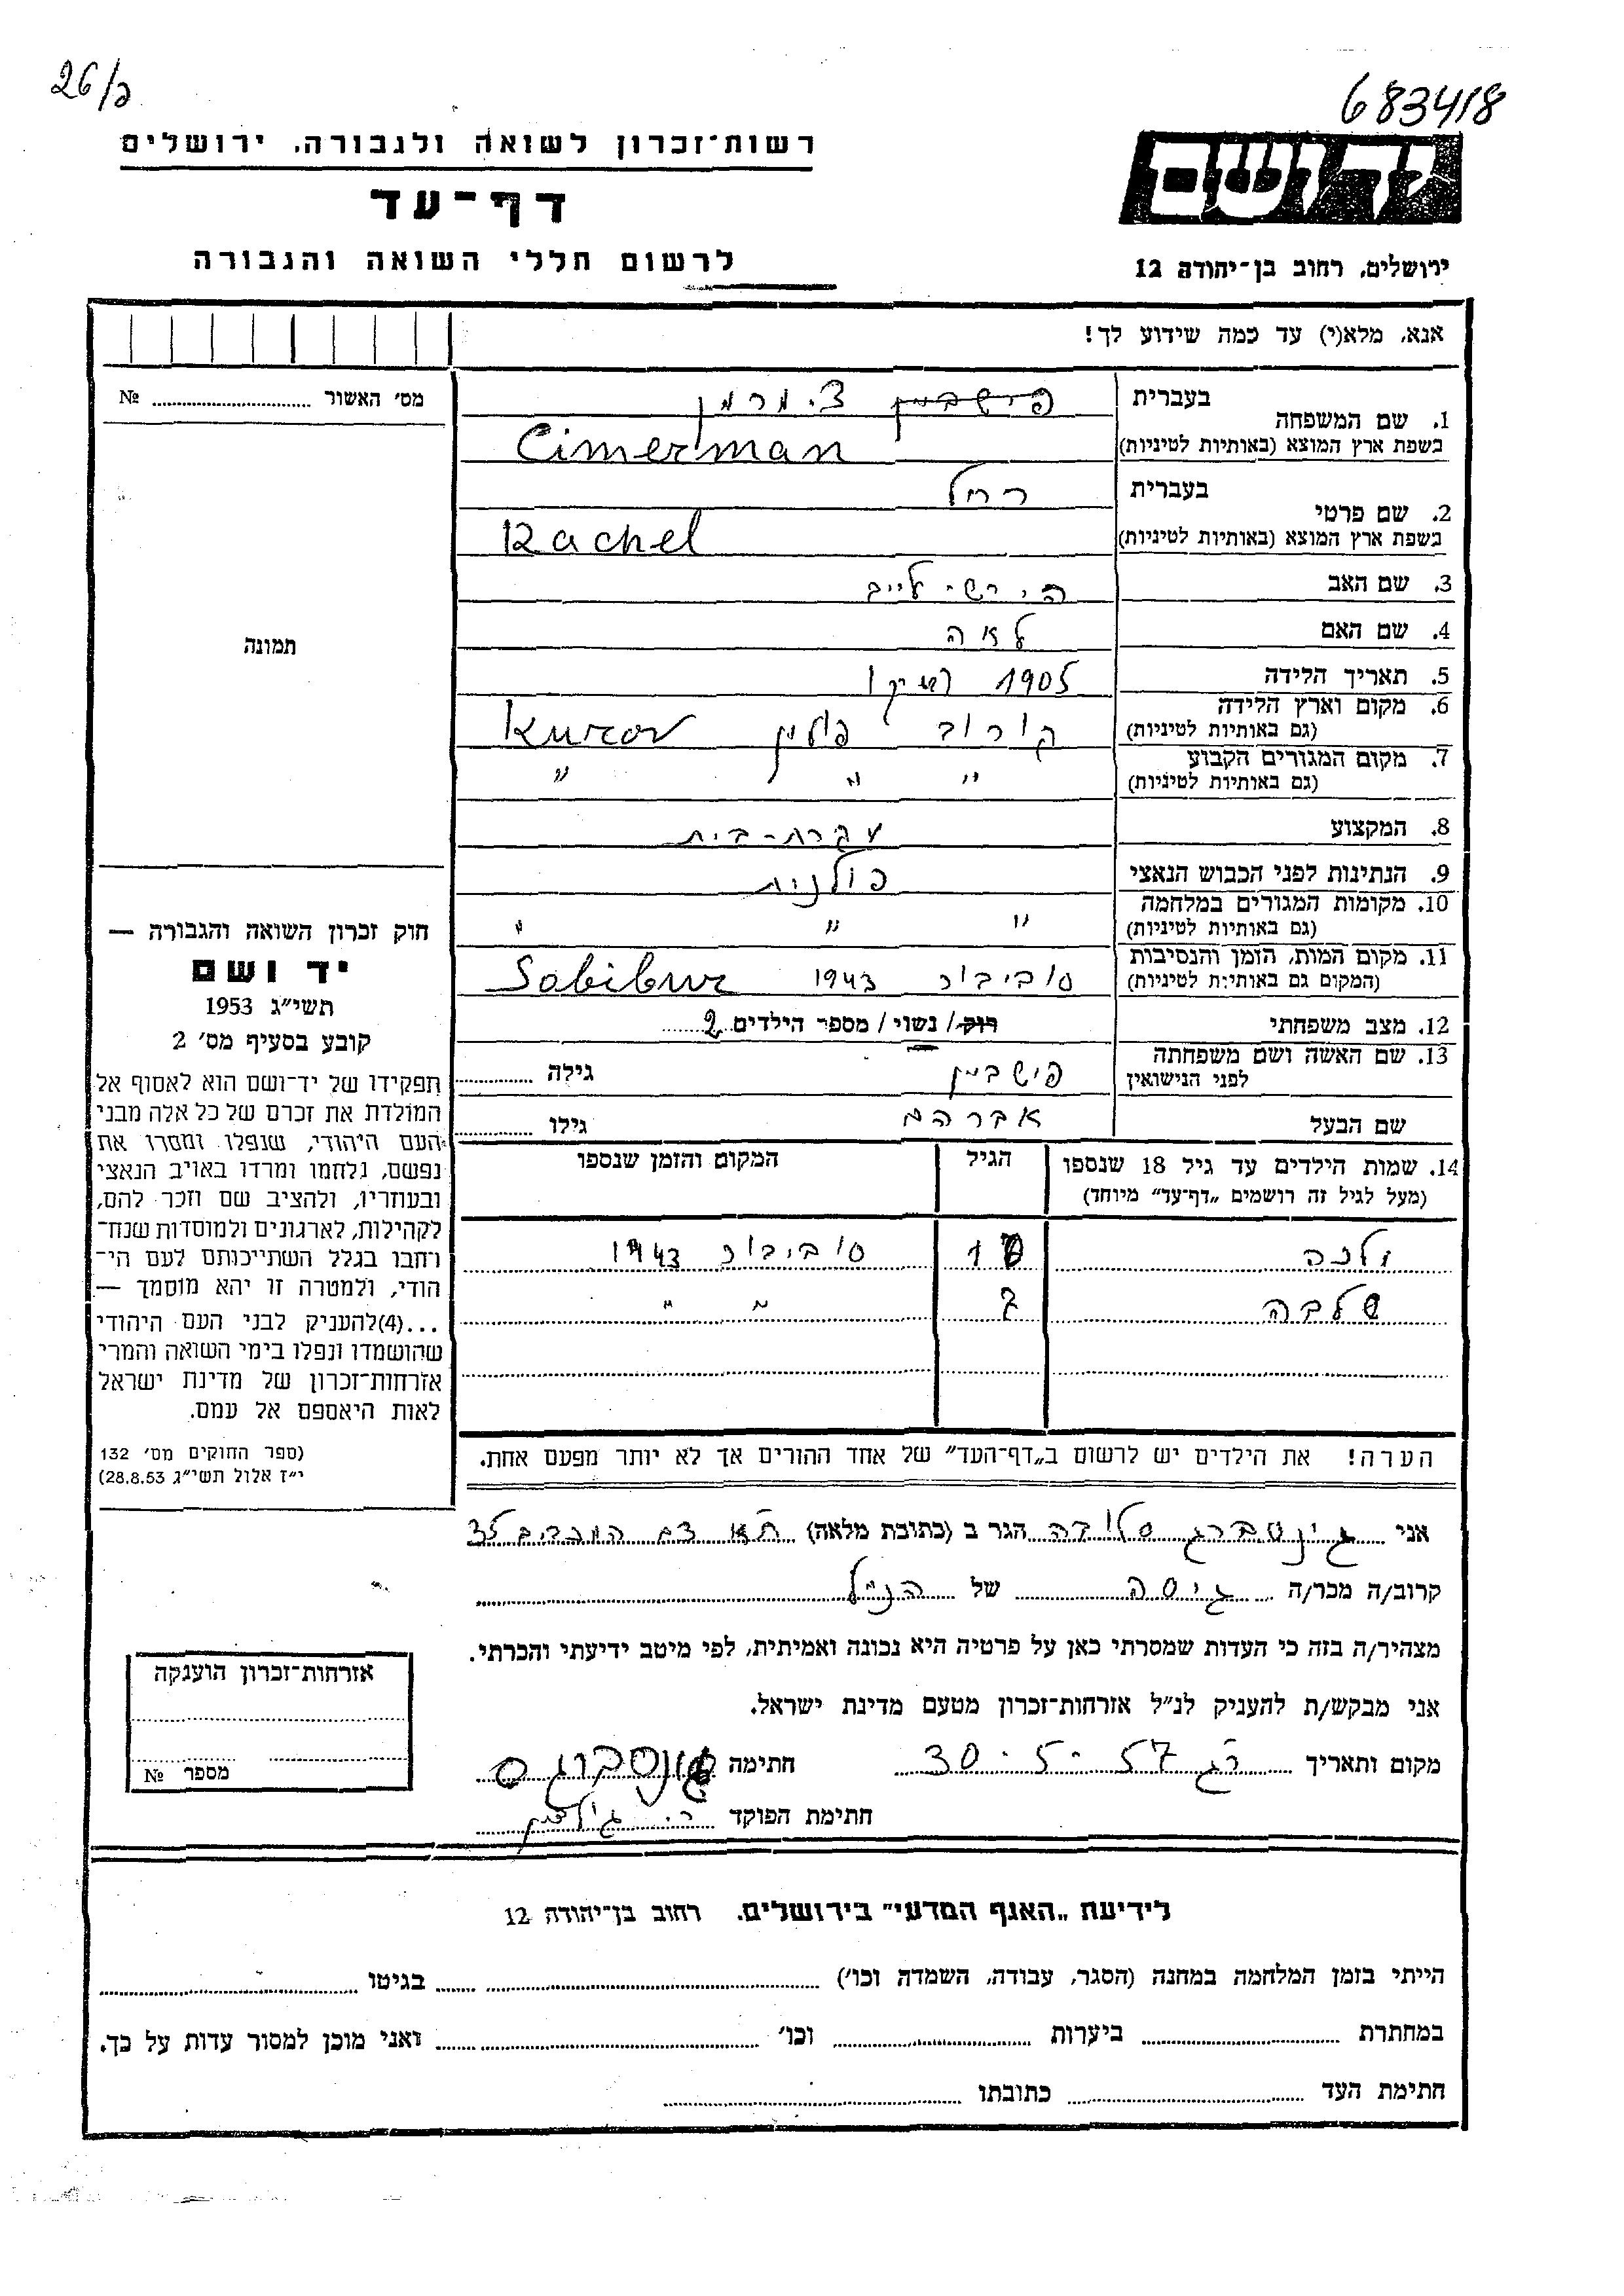 26/כ
683418
רשות־זכרון לשואה ולגבורה, ירושלים
דף־עד
לרשום חללי השואה והגבורה
יד ושם
ירושלים, רחוב בן־יהודה 12
אנא, מלא(י) עד כמה שידוע לך!
מס׳ האשור № 
1. שם המשפחה
בעברית פישביין צימרמן
בשפת ארץ המוצא (באותיות לטיניות) Cimerman
2. שם פרטי
בעברית רחל
בשפת ארץ המוצא (באותיות לטיניות) Rachel
3. שם האב הירש לייב
4. שם האם לאה
5. תאריך הלידה 1905
6. מקום וארץ הלידה
(גם באותיות לטיניות) קורוב פולין Kurov
7. מקום המגורים הקבוע
(גם באותיות לטיניות) " " "
8. המקצוע עקרת-בית
9. הנתינות לפני הכבוש הנאצי פולנית
10. מקומות המגורים במלחמה
(גם באותיות לטיניות) " " "
11. מקום המות, הזמן והנסיבות
(המקום גם באותיות לטיניות) סוביבור 1943 Sobibur
12. מצב משפחתי רוק/ נשוי/ מספר הילדים 2
13. שם האשה ושם משפחתה
לפני הנישואין פישביין גילה
שם הבעל אברהם גילו
14. שמות הילדים עד גיל 18 שנספו
(מעל לגיל זה רושמים „דף־עד״ מיוחד)
הגיל
המקום והזמן שנספו
סוביבור 1943
" "
תמונה
חוק זכרון השואה והגבורה —
יד ושם
תשי״ג 1953
קובע בסעיף מס׳ 2
תפקידו של יד־ושם הוא לאסוף אל
המולדת את זכרם של כל אלה מבני
העם היהודי, שנפלו ומסרו את
נפשם, נלחמו ומרדו באויב הנאצי
ובעוזריו, ולהציב שם וזכר להם,
לקהילות, לארגונים ולמוסדות שנח־
רבו בגלל השתייכותם לעם הי־
הודי, ולמטרה זו יהא מוסמך —
...(4) להעניק לבני העם היהודי
שהושמדו ונפלו בימי השואה והמרי
אזרחות־זכרון של מדינת ישראל
לאות היאספם אל עמם.
(ספר החוקים מס׳ 132
י״ז אלול תשי״ג 28.8.53)
הערה! את הילדים יש לרשום ב„דף־העד״ של אחד ההורים אך לא יותר מפעם אחת.
אני גינסברג הגר ב (כתובת מלאה)
קרוב/ה מכר/ה גיסה של הנ״ל
מצהיר/ה בזה כי העדות שמסרתי כאן על פרטיה היא נכונה ואמיתית, לפי מיטב ידיעתי והכרתי.
אני מבקש/ת להעניק לנ״ל אזרחות־זכרון מטעם מדינת ישראל.
מקום ותאריך רג 30-5-57 חתימה
חתימת הפוקד
אזרחות־זכרון הוענקה
מספר №
לידיעת „האגף המדעי״ בירושלים, רחוב בן־יהודה 12
הייתי בזמן המלחמה במחנה (הסגר, עבודה, השמדה וכו׳) בגיטו
במחתרת ביערות וכו׳ ואני מוכן למסור עדות על כך.
חתימת העד כתובתו